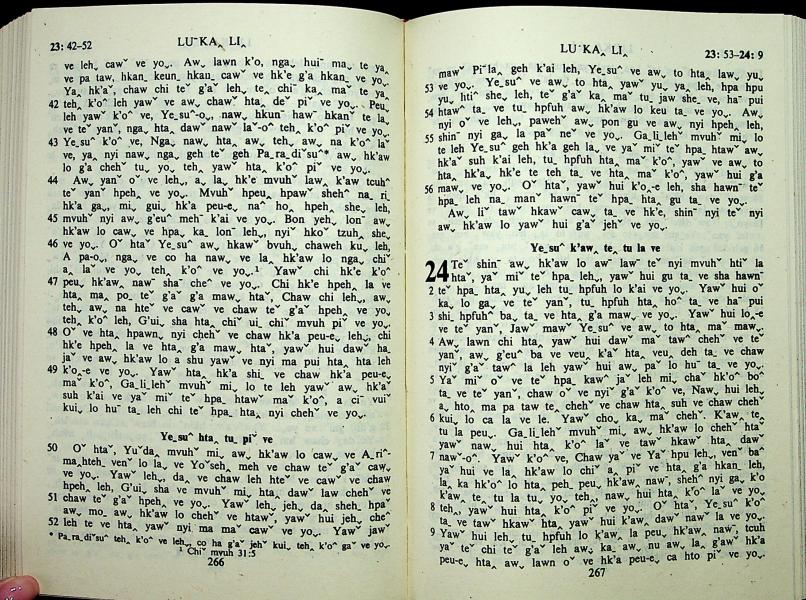 23: 42–52
LUˇ KAˬ LIˬ
ve lehˬ cawˇ ve yoˬ. Awˬ lawn k'o, ngaˬ huiˉ maˬ te yaˬ
ve pa taw, hkanˬ keun hkanˬ cawˇ ve hk'e g'a hkanˬ ve yoˬ.
Yaˬ hk'aˇ, chaw chi teˇ g'aˇ lehˬ teˬ chiˆ kaˬ maˇ te yaˬ
42 tehˬ k'oˆ leh yawˇ ve awˬ chawˇ htaˬ deˇ piˇ ve yoˬ. Peuˬ
leh yawˇ k'oˆ ve, Yeˬsuˆ-oˬ, nawˬ hkunˆ hawˉ hkanˆ te laˬ
ve teˇ yanˇ, nga htaˬ dawˇ nawˇ laˇ-oˆ tehˬ k'oˆ piˇ ve yoˬ.
43 Yeˬsuˆ k'oˆ ve, Nga nawˬ htaˬ awˬ tehˬ awˬ na k'oˆ laˇ
ve, yaˬ nyi nawˬ nga gehˇ teˇ geh Paˬraˬdiˇsuˆ* awˬ hk'aw
lo g'a chehˇ tuˬ yoˬ tehˬ yawˇ htaˬ k'oˆ piˇ ve yoˬ.
44 Awˬ yanˇ oˇ ve lehˬ, aˬ laˬ hk'e mvuhˇ lawˬ k'aw tcuhˆ
teˇ yanˇ hpehˬ ve yoˬ. Mvuhˇ hpeuˬ hpawˇ shehˆ naˬ riˬ
hk'a gaˬ, miˬ guiˬ hk'a peu-eˬ naˆ hoˬ hpeh sheˬ leh,
45 mvuhˇ nyi awˬ g'euˆ mehˉ k'ai ve yoˬ. Bon yehˬ lonˇ awˬ
hk'aw lo cawˇ ve hpaˬ kaˬ lonˉ lehˬ, nyiˇ hkoˇ tzuhˬ sheˬ
46 ve yoˬ. Oˇ htaˇ Yeˬsuˆ awˬ hkawˇ bvuhˬ chaweh kuˬ leh,
A pa-oˬ, ngaˬ ve co ha nawˬ ve laˬ hk'aw lo ngaˬ chiˆ
aˬ laˇ ve yoˬ tehˬ k'oˆ ve yoˬ.¹ Yawˇ chi hk'e k'oˆ
47 peuˬ hk'awˬ nawˉ shaˇ cheˆ ve yoˬ. Chi hk'e hpehˬ la ve
htaˬ maˬ poˬ teˇ g'aˇ g'a mawˬ htaˇ, Chaw chi lehˬ, awˬ
tehˬ awˬ na hteˇ ve cawˇ ve chaw teˇ g'aˇ hpehˬ ve yoˬ
tehˬ k'oˆ leh, G'uiˬ sha htaˬ chiˇ uiˬ chiˇ mvuh piˇ ve yoˬ.
48 Oˇ ve htaˬ hpawnˬ nyi chehˇ ve chaw hk'a peu-eˬ lehˬ, chi
hk'e hpehˬ la ve htaˬ g'a mawˬ htaˇ, yawˇ hui dawˇ haˬ
jaˇ ve awˬ hk'aw lo a shu yawˇ ve nyi ma pui htaˬ hta leh
49 k'oˬ-e ve yoˬ. Yawˇ htaˬ hk'a shiˬ ve chaw hk'a peu-eˬ
maˇ k'oˆ, Gaˬliˬlehˇ mvuhˇ miˬ lo te leh yawˇ awˬ hk'aˇ
suh k'ai ve ya miˇ teˇ hpaˬ htawˬ maˇ k'oˆ, a ciˇ vuiˇ
kuiˬ lo huˉ taˬ leh chi teˇ hpaˬ htaˬ nyi chehˇ ve yoˬ.
Yeˬsuˆ htaˬ tuˬ piˇ ve
50 Oˇ htaˇ, Yuˇda mvuhˇ miˬ awˬ hk'aw lo cawˬ ve Aˬriˆ-
maˬhtehˬ venˇ lo laˬ ve Yoˇsehˬ meh ve chaw teˇ g'aˇ cawˬ
ve yoˬ. Yawˇ lehˬ, daˬ ve chaw leh hteˇ ve cawˇ ve chaw
hpehˬ leh, G'uiˬ sha ve mvuhˇ miˬ htaˬ dawˇ law chehˇ ve
51 chaw teˇ g'aˇ hpehˬ ve yoˬ. Yawˇ lehˬ jehˬ daˬ shehˬ hpaˇ
awˬ moˬ awˬ hk'aw lo chehˇ ve htawˇ, yawˇ hui jehˬ cheˆ
52 leh te ve htaˬ yawˇ nyi ma maˇ cawˇ ve yoˬ. Yawˇ jaw
* Paˬraˬdiˇsuˆ tehˬ k'oˆ ve lehˬ, co ha g'aˬ jehˇ kuiˬ tehˬ k'oˆ gaˇ ve yoˬ.
¹ Chiˇ mvuh 31:5
266
LUˇ KAˬ LIˬ
23: 53–24: 9
mawˇ Piˇlaˬ geh k'ai leh, Yeˬsuˆ ve awˬ to htaˬ lawˬ yuˬ
53 ve yoˬ. Yeˬsuˆ ve awˬ to htaˬ yawˇ yuˬ yaˬ leh, hpa hpu
yuˬ htiˆ sheˬ leh, teˇ g'aˇ kaˬ maˇ tuˬ jaw sheˬ ve, haˇ pui
54 htawˆ taˬ ve tuˬ hpfuh awˬ hk'aw lo keu ta ve yoˬ. Awˬ
nyi oˇ ve lehˬ, pawehˇ awˬ pon gu ve awˬ nyi hpehˬ leh,
55 shinˉ nyi gaˬ la paˇ neˇ ve yoˬ. Gaˬliˬlehˇ mvuhˇ miˬ lo
te leh Yeˬsuˆ geh hk'a geh laˬ ve yaˇ miˇ teˇ hpaˬ htawˇ awˬ
hk'aˇ suh k'ai leh, tuˬ hpfuh htaˬ maˇ k'oˆ, yawˇ ve awˬ to
htaˬ hk'aˬ hk'e te teh taˬ ve htaˬ maˇ k'oˆ, yawˇ hui g'a
56 mawˬ ve yoˬ. Oˇ htaˇ, yawˇ hui k'oˬ-e leh, sha hawnˉ teˇ
hpaˬ leh naˬ manˇ hawnˉ teˇ hpaˬ htaˬ gu taˬ ve yoˬ.
Awˬ liˇ tawˇ hkawˇ cawˬ taˬ ve hk'e, shinˉ nyi teˇ nyi
awˬ hk'aw lo yawˇ hui g'aˇ jehˇ ve yoˬ.
Yeˬsuˆ k'awˬ teˬ tu la ve
24 Teˇ shinˉ awˬ hk'aw lo awˇ lawˇ teˇ nyi mvuhˇ htiˇ la
htaˇ, yaˇ miˇ teˇ hpaˬ lehˬ, yawˇ hui gu taˬ ve sha hawnˉ
2 teˇ hpaˬ htaˬ yuˬ leh tuˬ hpfuh lo k'ai ve yoˬ. Yawˇ hui oˇ
kaˬ lo gaˬ ve teˇ yanˇ, tuˬ hpfuh htaˬ hoˆ taˬ ve haˇ pui
3 shiˬ hpfuhˆ baˬ taˬ ve htaˬ g'a mawˬ ve yoˬ. Yawˇ hui loˬ-e
ve teˇ yanˇ, Jawˇ mawˇ Yeˬsuˆ ve awˬ to htaˬ maˇ mawˬ.
4 Awˬ lawn chi htaˬ yawˇ hui dawˇ maˇ tawˆ chehˇ ve teˇ
yanˇ, awˬ g'euˆ ba ve veuˬ k'aˇ htaˬ veuˬ deh taˬ ve chaw
nyiˇ g'aˇ tawˆ la leh yawˇ hui awˬ paˇ lo huˉ taˬ ve yoˬ.
5 Yaˇ miˇ oˇ ve teˇ hpaˬ kawˆ jaˇ leh miˬ chaˇ hk'oˆ boˆ
taˬ ve teˇ yanˇ, chaw oˇ ve nyiˇ g'aˇ k'oˆ ve, Nawˬ hui lehˬ,
aˬ hto ma pa taw teˬ chehˇ ve chaw htaˬ suh ve chaw chehˇ
6 kuiˬ lo ca la ve le. Yawˇ choˬ kaˬ maˇ chehˇ. K'awˬ teˬ
tu la peuˬ. Gaˬliˬlehˇ mvuhˇ miˬ awˬ hk'aw lo chehˇ htaˇ
yawˇ nawˬ hui htaˬ k'oˆ laˇ ve tawˇ hkawˇ htaˬ dawˇ
7 nawˇ-oˆ. Yawˇ k'oˆ ve, Chaw yaˇ ve Yaˇ hpu lehˬ, venˇ baˆ
yaˇ hui ve laˬ hk'aw lo chiˆ aˬ piˇ ve htaˬ g'a hkanˬ leh,
laˬ kaˬ hk'oˆ lo htaˬ pehˬ peuˬ hk'awˬ nawˉ, shehˆ nyi gaˬ k'o
k'awˬ teˬ tu la tuˬ yoˬ tehˬ nawˬ hui htaˬ k'oˆ laˇ ve yoˬ
8 tehˬ yawˇ hui htaˬ k'oˆ piˇ ve yoˬ. Oˇ htaˇ, Yeˬsuˆ k'oˆ
taˬ ve tawˇ hkawˇ htaˬ yawˇ hui k'awˬ dawˇ nawˇ la ve yoˬ.
9 Yawˇ hui lehˬ tuˬ hpfuh lo k'awˬ la peuˬ hk'awˬ nawˉ, tcuh
yaˇ teˇ chi teˇ g'aˇ leh awˬ kaˬ awˬ nu awˬ laˬ g'awˇ hk'a
peu-eˬ htaˬ awˬ lawn oˇ ve hk'a peu-eˬ ca hto piˇ ve yoˬ.
267